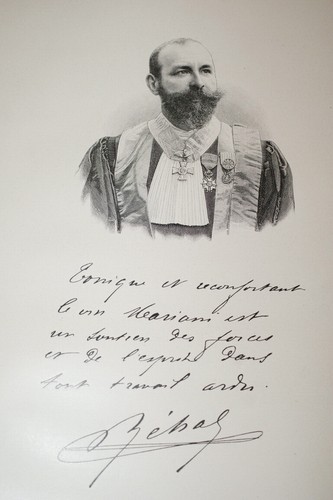 Tonique et reconfortant
le vin Mariani est
un soutien des forces
et de l'esprit dans
tout travail ardu.
Béhal